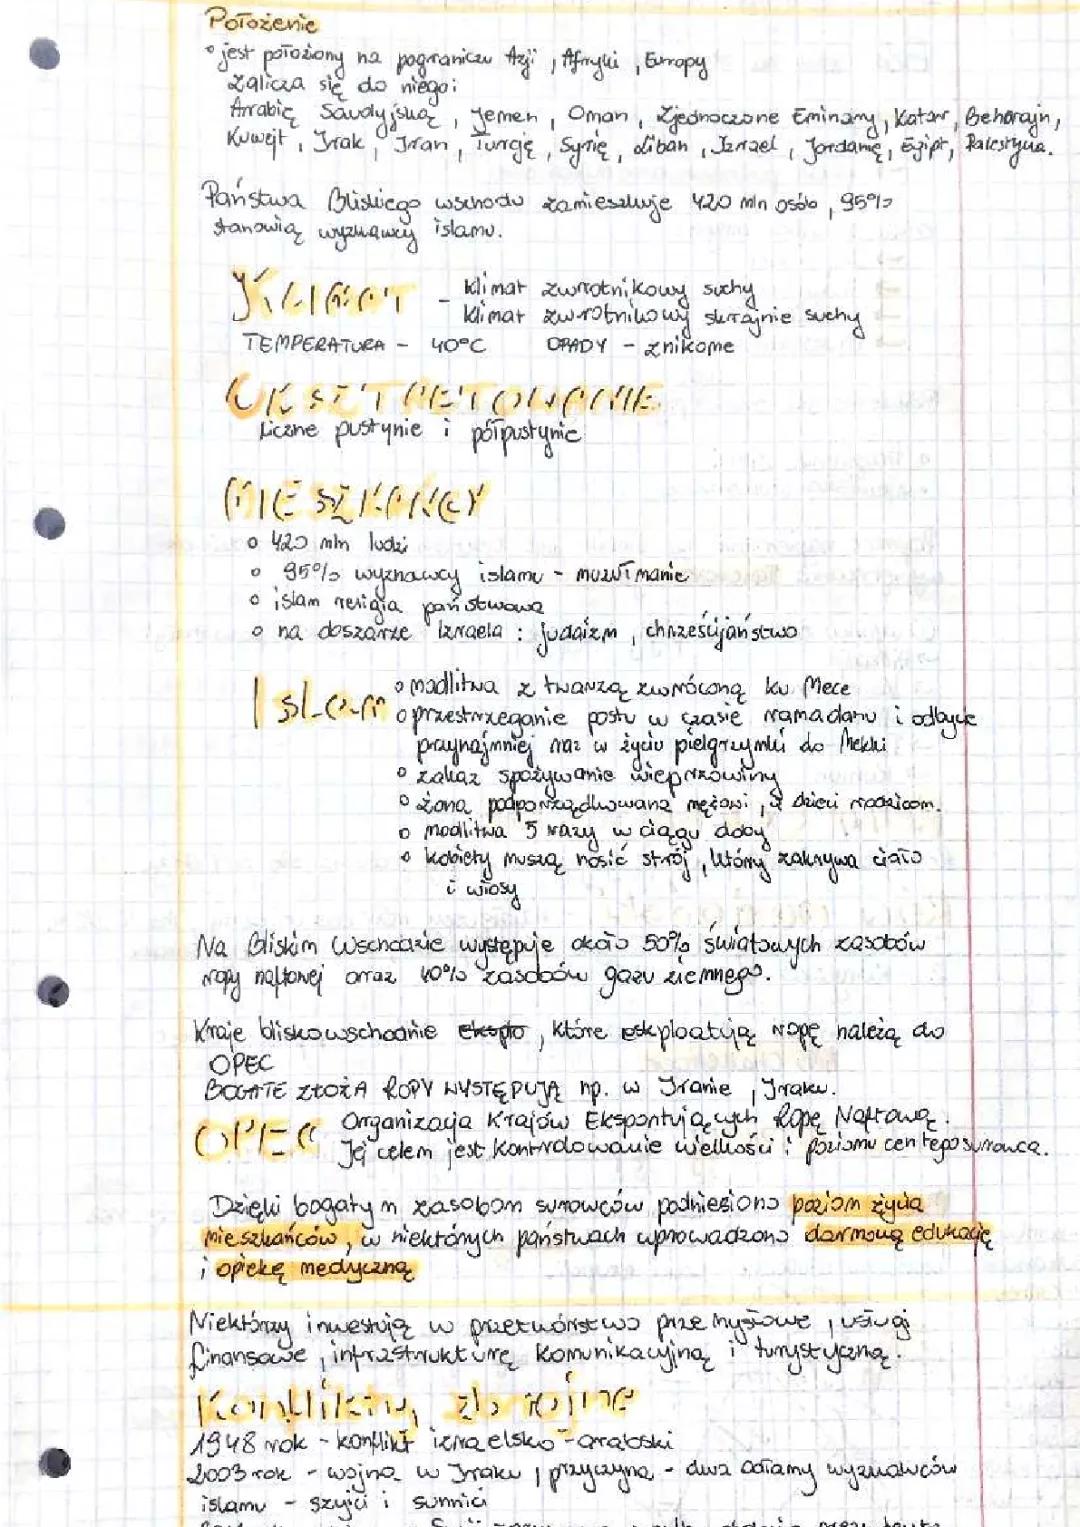 Położenie
° jest położony na pograniczu Azji, Afryki, Europy
Zalicza się do niego:
Arabię Saudyjską, Jemen, Oman, Zjednoczone Emirany, Katar, Beharajn,
Kuwejt, Irak, Iran, Turgię, Syrię, Liban, Izrael, Jordanię, Egipt, Palestyna.
Państwa Bliskiego wschodu zamieszkuje 420 mln osób, 95%
stanowią wyznawcy islamu.
KLIMAT - klimat zwrotnikowy suchy
klimat zwrotnikowy skrajnie suchy
TEMPERATURA - 40°C OPADY - znikome
UKSZTAŁTOWANIE
Liczne pustynie i półpustynie
MIESZKAŃCY
° 420 mln ludzi
° 95% wyznawcy islamu - muzułmanie
° islam religia państwowa
° na obszarze Izraela : judaizm, chrześcijaństwo
Islam ° modlitwa z twarzą zwróconą ku Mece
° przestrzeganie postu w czasie ramadanu i odbycie
przynajmniej raz w życiu pielgrzymki do Mekki
° zakaz spożywanie wieprzowiny
° żona podporządkowana mężowi, a dzieci rodzicom.
° modlitwa 5 razy w ciągu doby
° kobiety muszą nosić strój, który zakrywa ciało
i włosy
Na Bliskim Wschodzie występuje około 50% światowych zasobów
ropy naftowej oraz 40% zasobów gazu ziemnego.
Kraje bliskowschodnie, które eskploatują ropę należą do
OPEC
BOGATE ZŁOŻA ROPY WYSTĘPUJĄ np. w Iranie, Iraku.
OPEC Organizacja Krajów Eksportujących Ropę Naftową.
Jej celem jest kontrolowanie wielkości i poziomu cen tego surowca.
Dzięki bogatym zasobom surowców podniesiono poziom życia
mieszkańców, w niektórych państwach uprowadzono darmową edukację
i opiekę medyczną
Niektórzy inwestują w przetwórstwo przemysłowe, usługi
finansowe, infrastrukturę komunikacyjną i turystyczną.
Konflikty zbrojne
1948 rok - konflikt izraelsko-arabski
2003 rok - wojna w Iraku, przyczyna - dwa odłamy wyznawców
islamu - szyici i sunnici